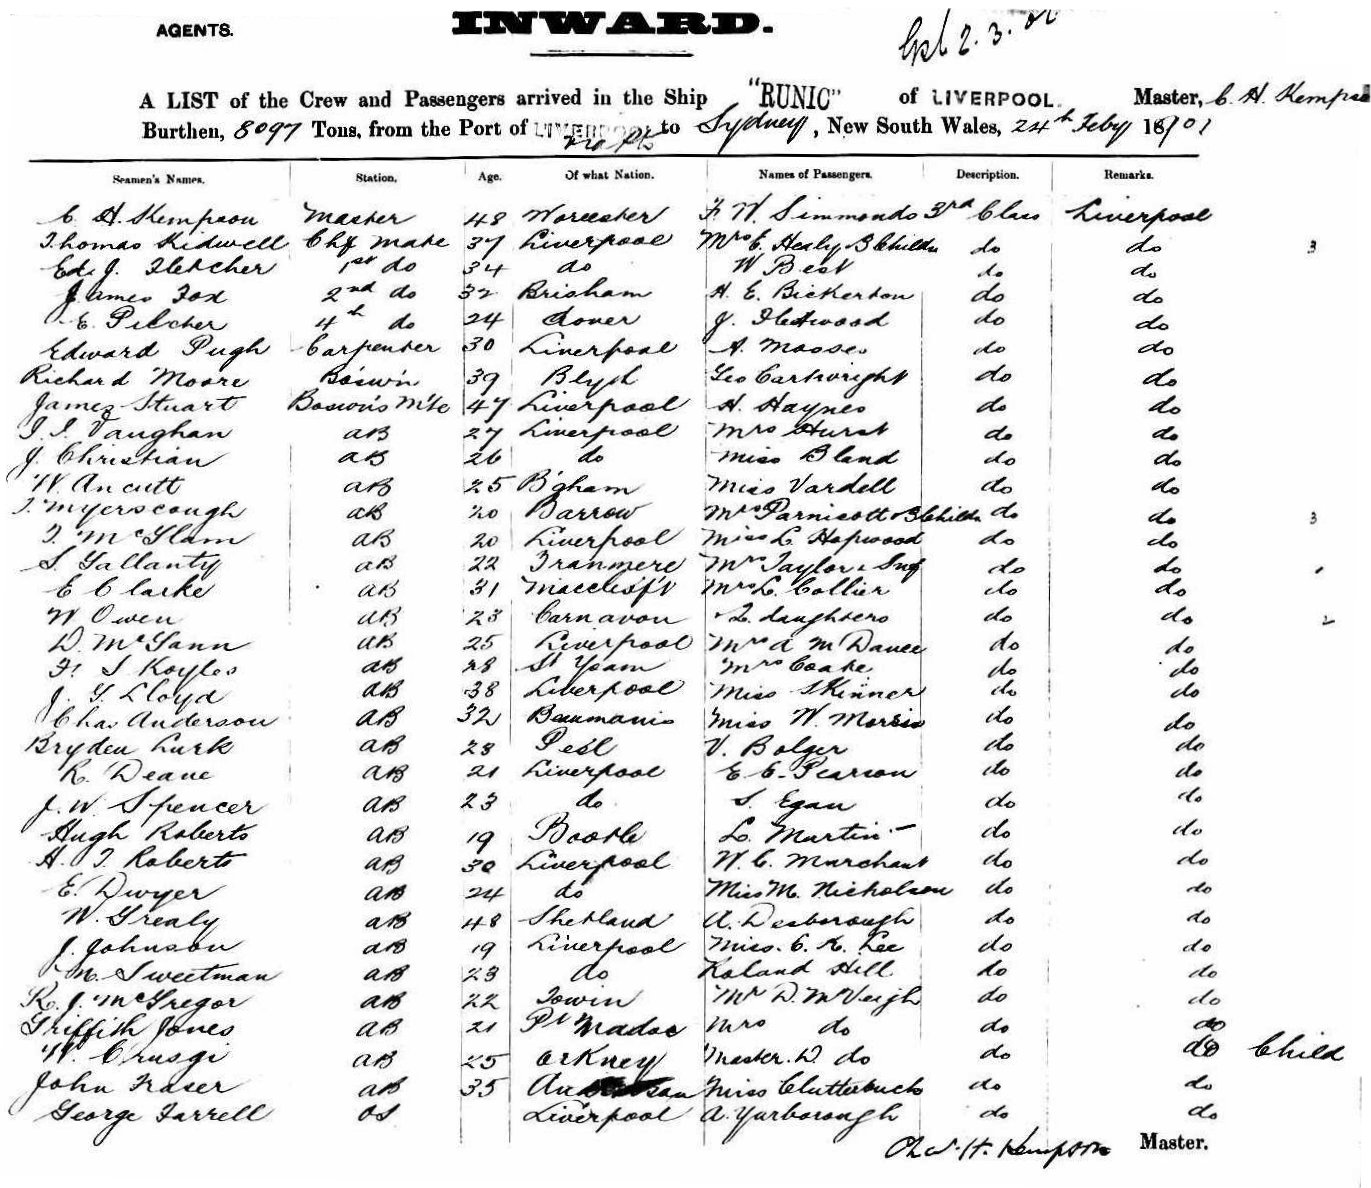 AGENTS.
INWARD.
2.3.01
A LIST of the Crew and Passengers arrived in the Ship "RUNIC" of LIVERPOOL. Master, C. H. Kempson
Burthen, 8097 Tons, from the Port of LIVERPOOL to Sydney, New South Wales, 24th Feby 18/901
Seamen's Names. Station. Age. Of what Nation. Names of Passengers. Description. Remarks.
C. H. Kempson Master 48 Worcester F. W. Simmonds 3rd Class Liverpool
Thomas Kidwell Chf Mate 37 Liverpool Mrs E. Healy 3 Childn do do 3
Ed. J. Fletcher 1st do 34 do W Best do do
James Fox 2nd do 32 Brixham H. E. Bickerton do do
E. Pilcher 4th do 24 Dover J. Fleetwood do do
Edward Pugh Carpenter 30 Liverpool A. Mosses do do
Richard Moore Bos'w'n 39 Blyth Geo Cartwright do do
James Stuart Boswn's M'te 47 Liverpool H. Haynes do do
T. I. Vaughan AB 27 Liverpool Mrs Hurst do do
J. Christian AB 26 do Miss Bland do do
W. Ancutt AB 25 B'gham Miss Vardell do do
T. Myerscough AB 20 Barrow Mrs Parnicott 3 Childn do do 3
T. McGlam AB 20 Liverpool Miss L. Hopwood do do
S. Gallanty AB 22 Tranmere Mrs Taylor & Inf do do
E Clarke AB 31 Macclesf'd Mrs L. Collier do do
W Owen AB 23 Carnavon 2 daughters do do 2
D. McGann AB 25 Liverpool Mrs A M Dance do do
F. S Koyles AB 28 St Mrs Coake do do
J. G Lloyd AB 38 Liverpool Miss Skinner do do
Chas Anderson AB 32 Beaumaris Miss W. Morris do do
Bryden Lurk AB 23 Peel V. Bolger do do
R. Deane AB 21 Liverpool E E. Pearson do do
J. W. Spencer AB 23 do S. Egan do do
Hugh Roberts AB 19 Bootle L. Martin do do
H. T. Roberts AB 30 Liverpool W. C. Marchant do do
E. Dwyer AB 24 do Miss M. Nicholson do do
W. Grealy AB 48 Shetland A. Desborough do do
J. Johnson AB 19 Liverpool Miss. C. K. Lee do do
Sweetman AB 23 do Roland Hill do do
R. J. McGregor AB 22 Towin Mr D. McVeigh do do
Griffith Jones AB 21 Pt Madoc Mrs do do do
W. Crusgi AB 25 Orkney Master. D. do do do Child
John Fraser AB 35 Miss Clutterbuck do do
George Farrell OS Liverpool A. Yarborough do do
Chas. H. Kempson Master.